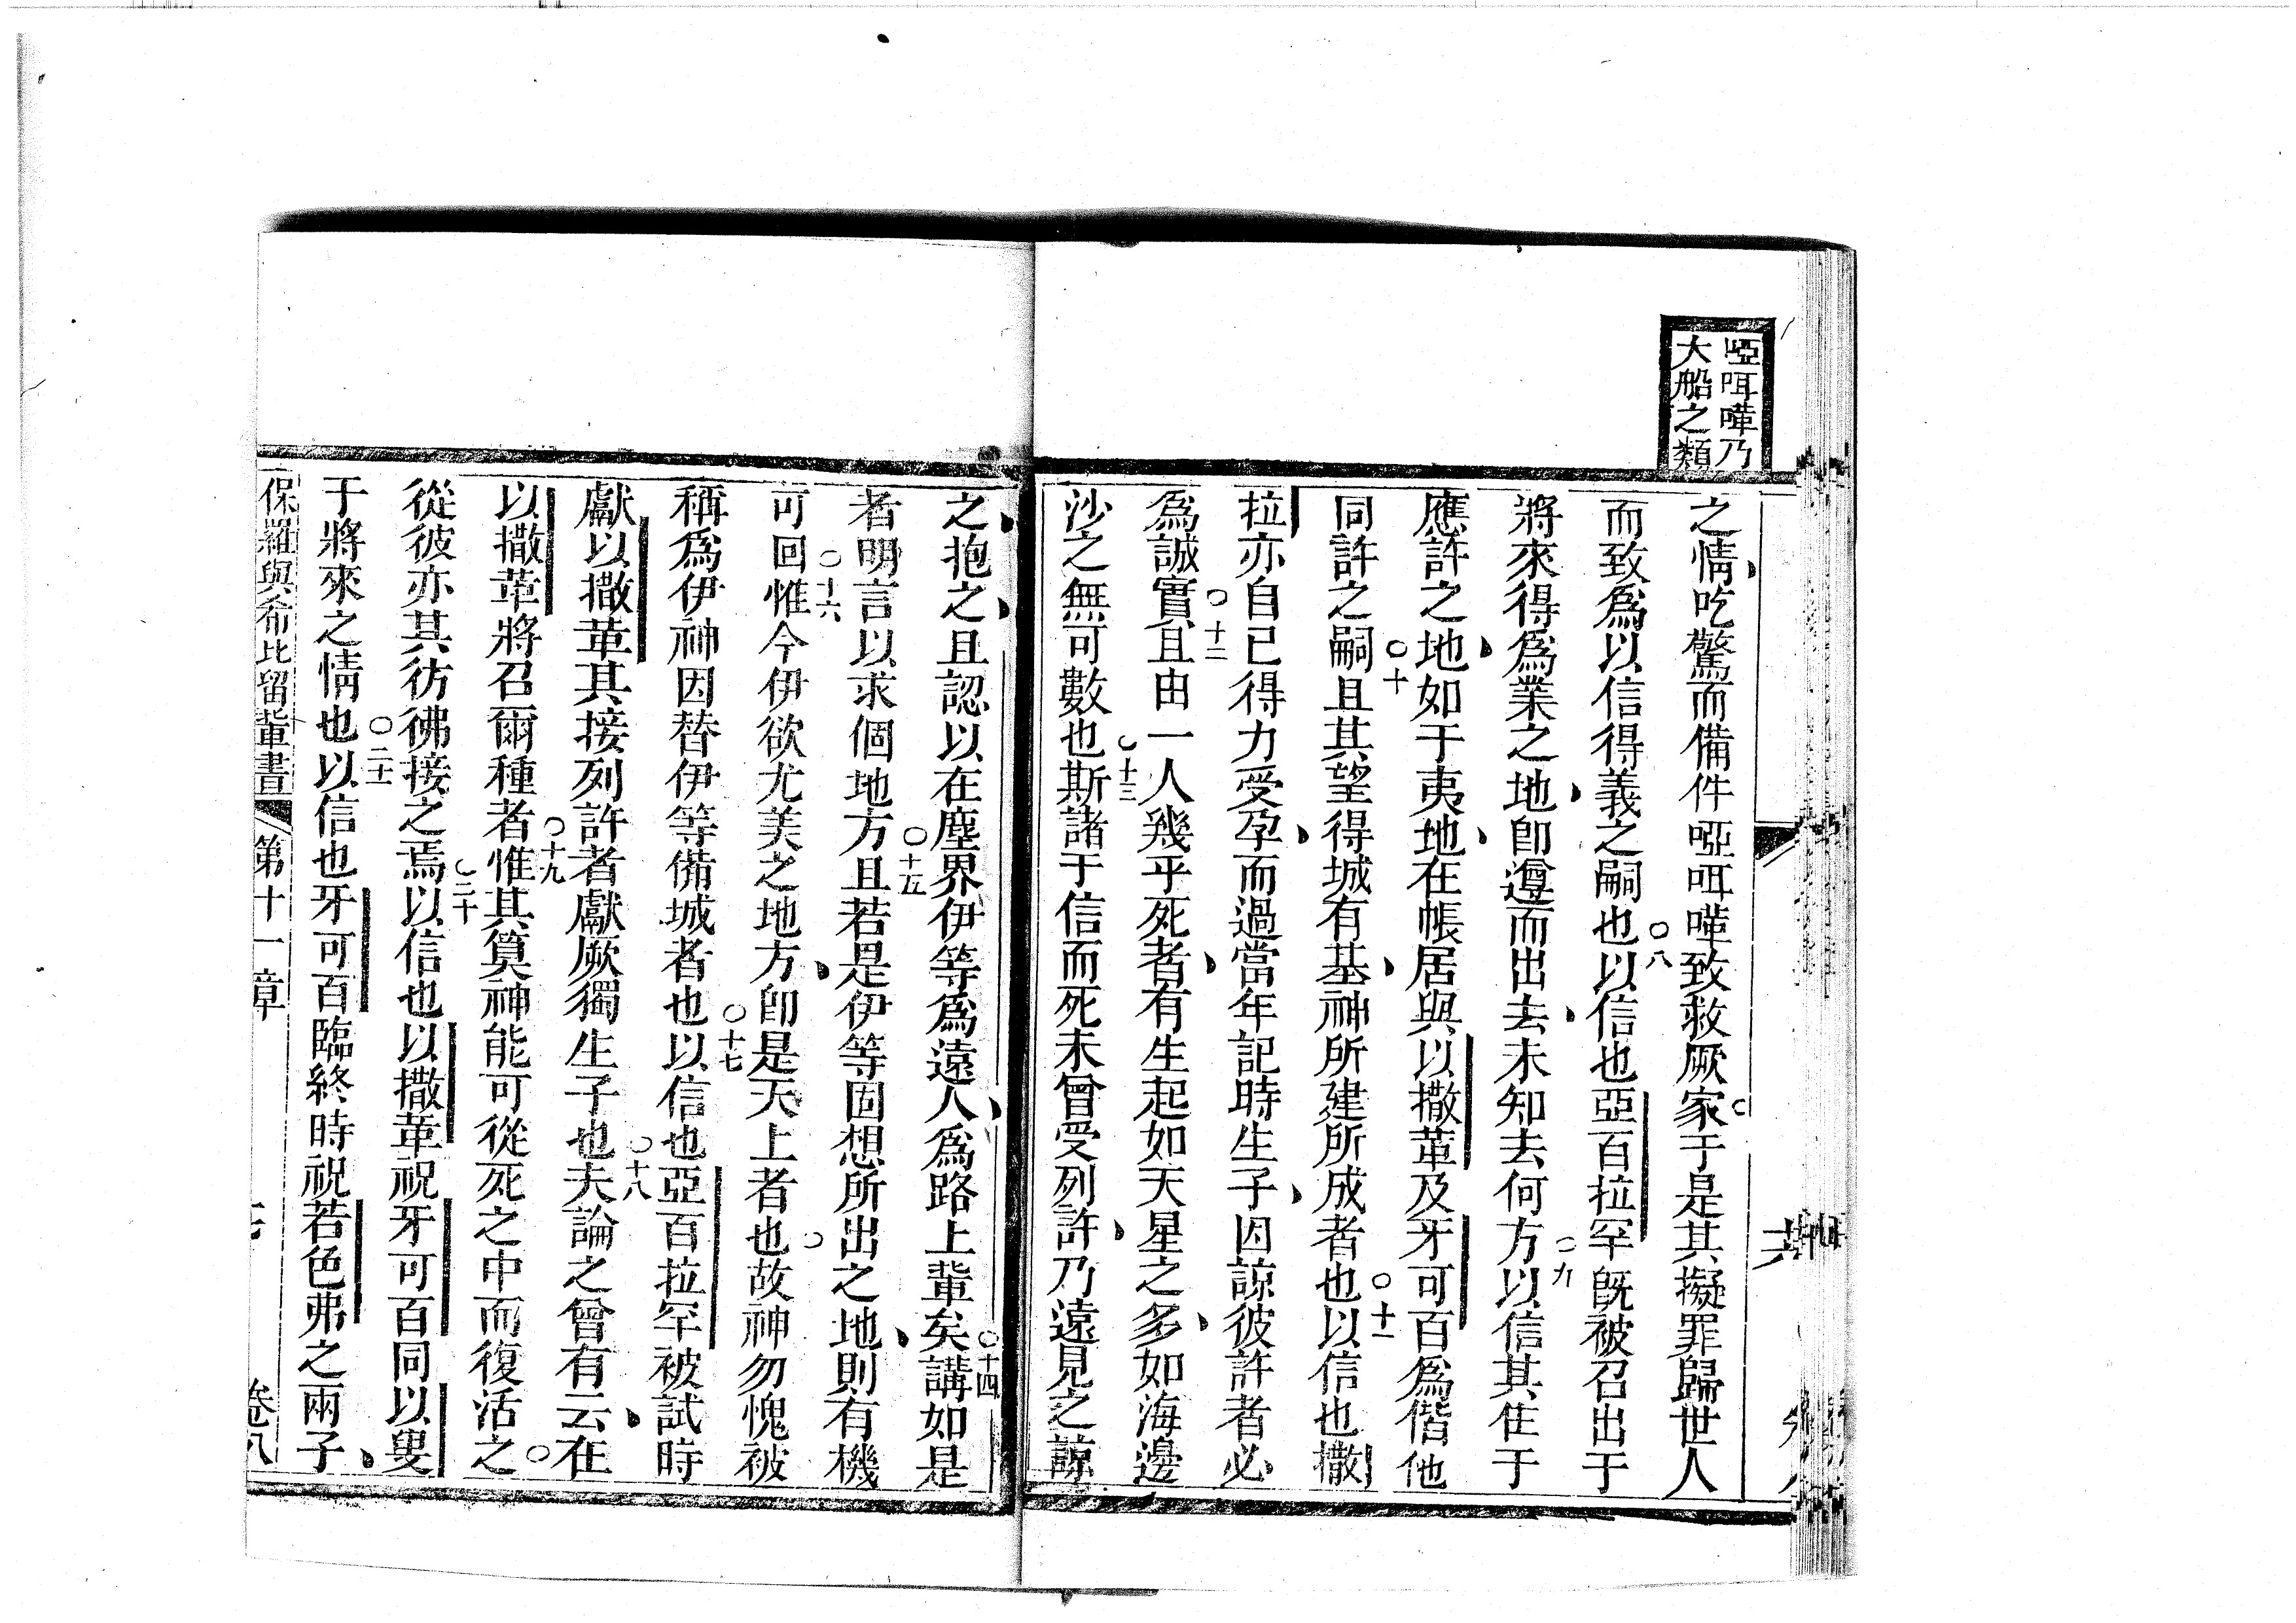 啞咡嗶乃
大船之類
之情吃驚而備件啞咡嗶致救厥家于是其擬罪歸世人
而致爲以信得義之嗣也○八以信也亞百拉罕旣被召出于
將來得爲業之地卽遵而出去未知去何方○九以信其住于
應許之地如于夷地在帳居與以撒革及牙可百爲偕他
同許之嗣○十且其望得城有基神所建所成者也○十一以信也撒
拉亦自已得力受孕而過當年記時生子因諒彼許者必
爲誠實○十二且由一人幾乎死者有生起如天星之多如海邊
沙之無可數也○十三斯諸于信而死未曾受列許乃遠見之諒
之抱之且認以在塵界伊等爲遠人爲路上輩矣○十四講如是
者明言以求個地方○十五且若是伊等固想所出之地則有機
可回○十六惟今伊欲尤美之地方卽是天上者也故神勿愧被
稱爲伊神因替伊等備城者也○十七以信也亞百拉罕被試時
獻以撒革其接列許者獻厥獨生子也○十八夫論之曾有云在
以撒革將召爾種者○十九惟其算神能可從死之中而復活之
從彼亦其彷彿接之焉○二十以信也以撒革祝牙可百同以叟
于將來之情也○二十一以信也牙可百臨終時祝若色弗之兩子
保羅與希比留輩書 第十一章 卷八